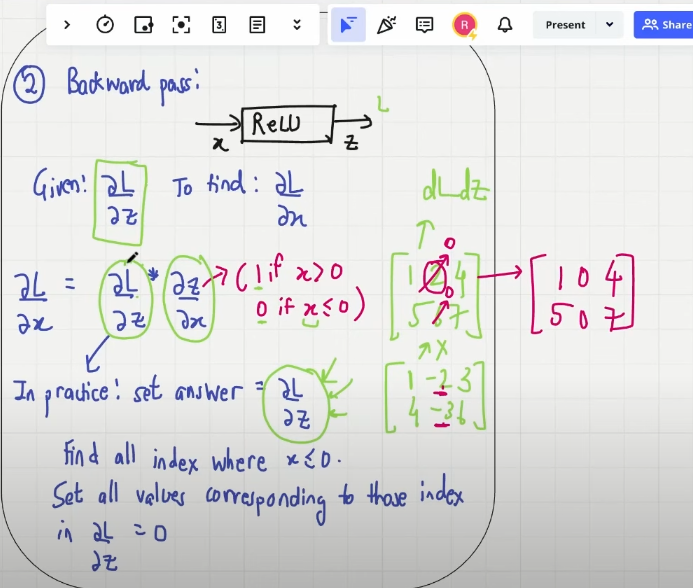 3
R
Present
Share
② Backward pass:
L
ReLU
x
z
Given: ∂L/∂z To find: ∂L/∂x
dLdz
0
∂L/∂x = ∂L/∂z * ∂z/∂x → (1 if x>0
0 if x≤0)
[1 2 4
0
5 6 7]
→ [1 0 4
5 0 7]
X
[1 -2 3
4 -3 6]
In practice: set answer = ∂L/∂z
Find all index where x≤0.
Set all values corresponding to those index
in ∂L/∂z = 0